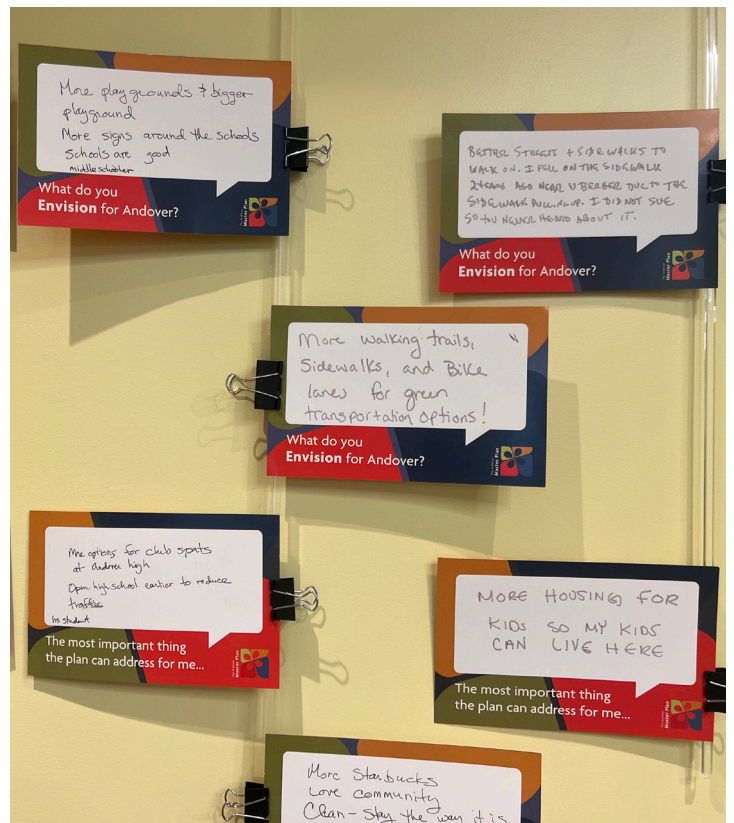 More playgrounds & bigger
playground
More signs around the schools
Schools are good
middle schooler
What do you
Envision for Andover?
Master Plan
BETTER STREETS + SIDEWALKS TO
WALK ON. I FELL ON THE SIDEWALK
2 YEARS AGO NEAR U BERGER DUE TO THE
SIDEWALK . I DID NOT SUE
SO YOU NEVER HEARD ABOUT IT.
What do you
Envision for Andover?
Master Plan
More walking trails,
Sidewalks, and Bike
lanes for green
transportation options!
What do you
Envision for Andover?
Master Plan
More options for club sports
at andover high
Open high school earlier to reduce
traffic
hs student
The most important thing
the plan can address for me...
Master Plan
MORE HOUSING FOR
KIDS SO MY KIDS
CAN LIVE HERE
The most important thing
the plan can address for me...
Master Plan
More Starbucks
Love community
Clean - Stay the way it is